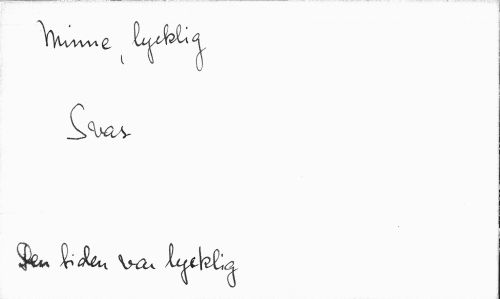 Minne, lycklig
Svar
Den tiden var lycklig